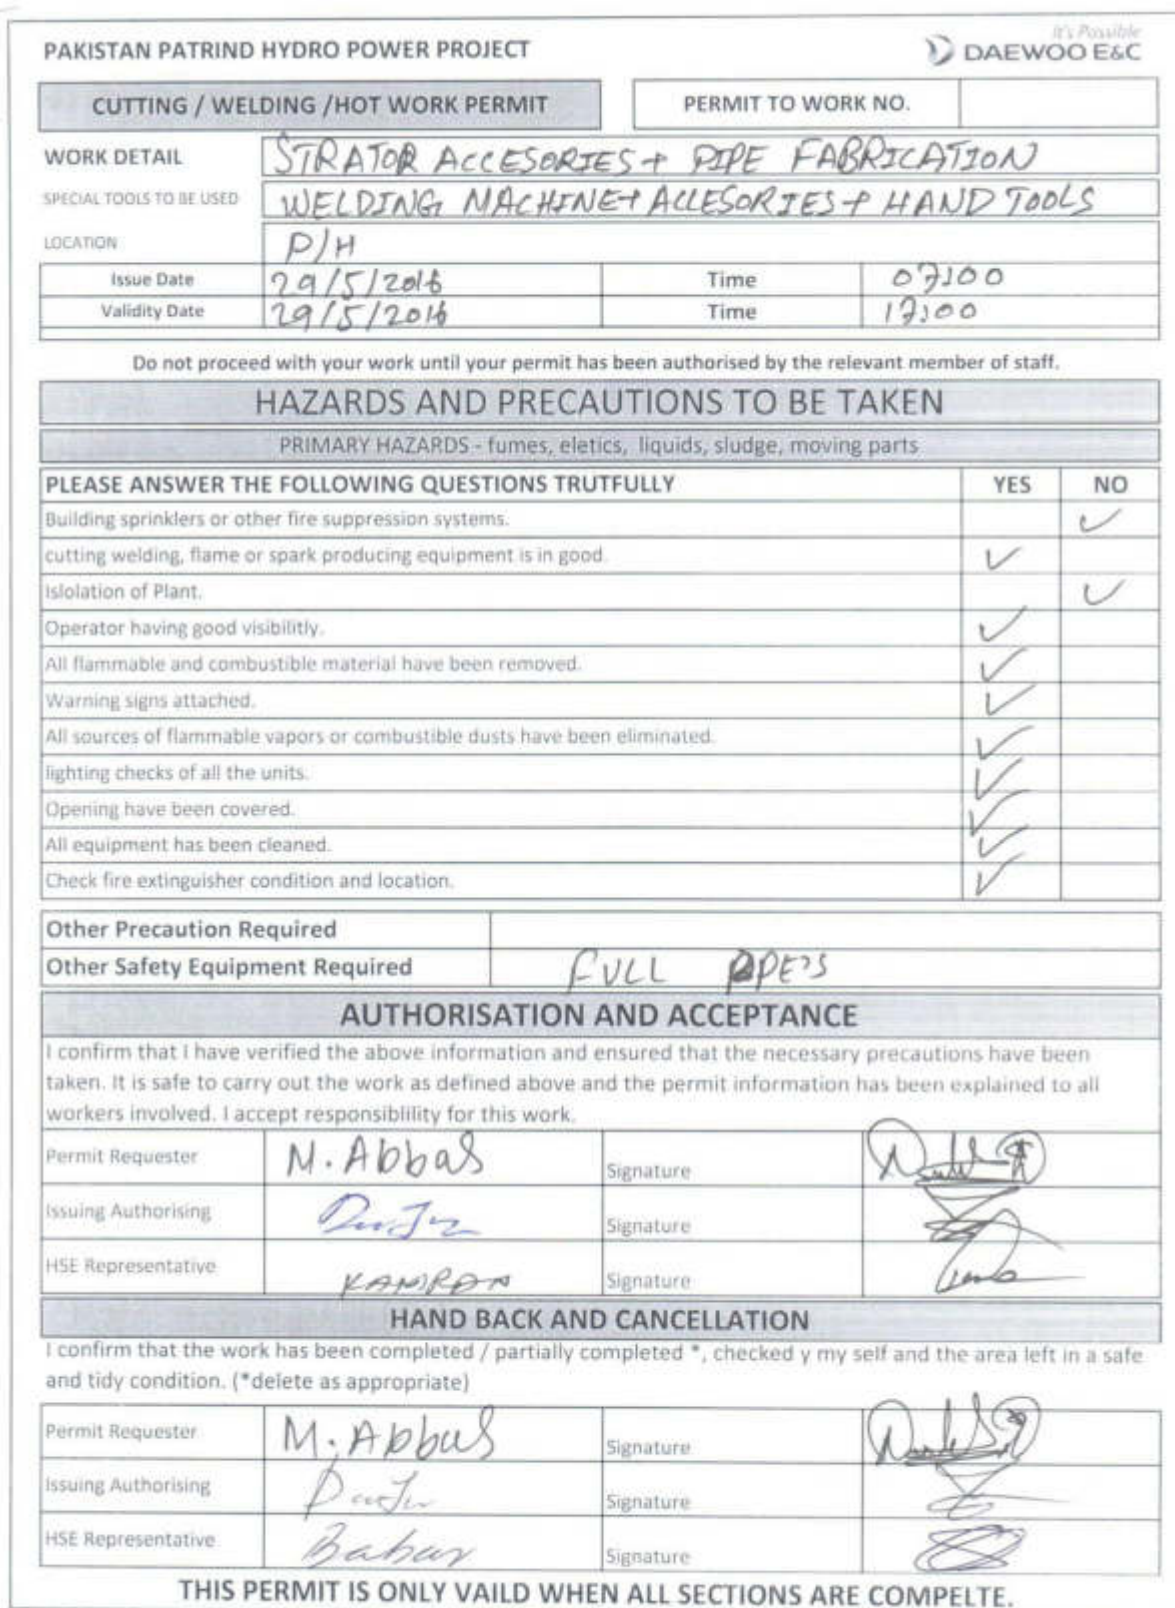 It's Possible
PAKISTAN PATRIND HYDRO POWER PROJECT DAEWOO E&C
CUTTING / WELDING /HOT WORK PERMIT PERMIT TO WORK NO.
WORK DETAIL STRATOR ACCESORIES + PIPE FABRICATION
SPECIAL TOOLS TO BE USED WELDING MACHINE+ ACCESORIES + HAND TOOLS
LOCATION P/H
Issue Date 29/5/2016 Time 07:00
Validity Date 29/5/2016 Time 17:00
Do not proceed with your work until your permit has been authorised by the relevant member of staff.
HAZARDS AND PRECAUTIONS TO BE TAKEN
PRIMARY HAZARDS - fumes, eletics, liquids, sludge, moving parts
PLEASE ANSWER THE FOLLOWING QUESTIONS TRUTFULLY YES NO
Building sprinklers or other fire suppression systems. ✓
cutting welding, flame or spark producing equipment is in good. ✓
Islolation of Plant. ✓
Operator having good visibilitly. ✓
All flammable and combustible material have been removed. ✓
Warning signs attached. ✓
All sources of flammable vapors or combustible dusts have been eliminated. ✓
lighting checks of all the units. ✓
Opening have been covered. ✓
All equipment has been cleaned. ✓
Check fire extinguisher condition and location. ✓
Other Precaution Required
Other Safety Equipment Required FULL PPE'S
AUTHORISATION AND ACCEPTANCE
I confirm that I have verified the above information and ensured that the necessary precautions have been
taken. It is safe to carry out the work as defined above and the permit information has been explained to all
workers involved. I accept responsiblility for this work.
Permit Requester M. Abbas Signature
Issuing Authorising Signature
HSE Representative KAMRAN Signature
HAND BACK AND CANCELLATION
I confirm that the work has been completed / partially completed *, checked y my self and the area left in a safe
and tidy condition. (*delete as appropriate)
Permit Requester M. Abbas Signature
Issuing Authorising Signature
HSE Representative Babar Signature
THIS PERMIT IS ONLY VAILD WHEN ALL SECTIONS ARE COMPELTE.